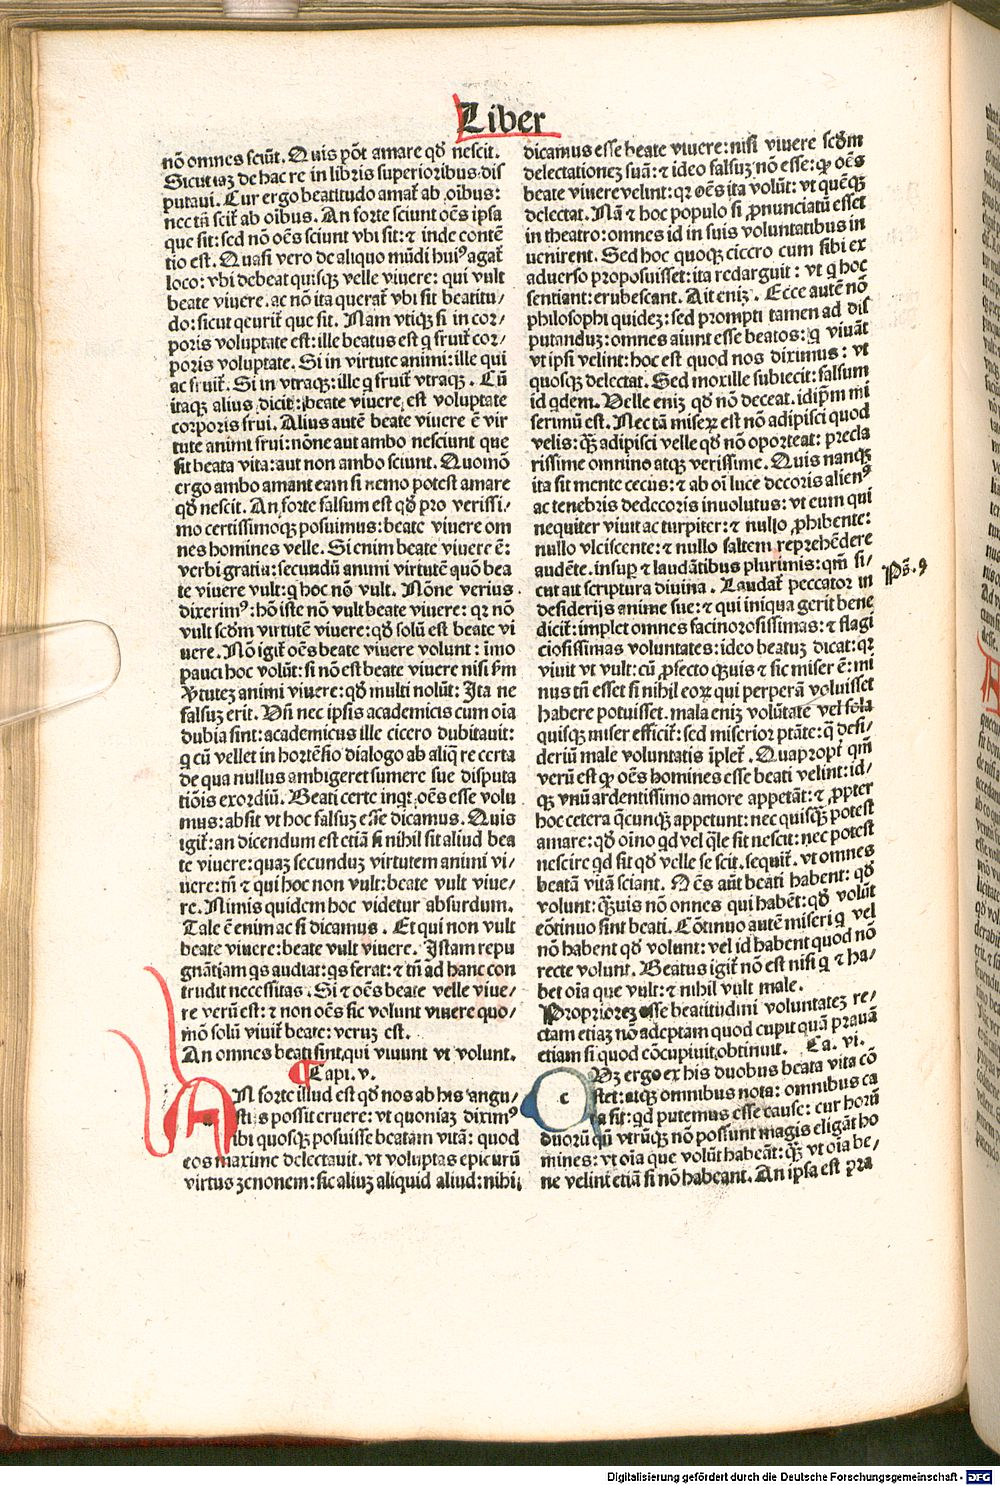 Liber
nō omnes sciūt. Quis pōt amare qđ nescit.
Sicut iaꝫ de hac re in libris superioribus dis
putaui. Cur ergo beatitudo amat̄ ab oībus:
nec tn̄ scit̄ ab oībus. An forte sciunt oēs ipsa
que sit: sed nō oēs sciunt vbi sit: ⁊ inde contē
tio est. Quasi vero de aliquo mūdi huiꝰ agat̄
loco: vbi debeat quisqꝫ velle viuere: qui vult
beate viuere. ac nō ita querat̄ vbi sit beatitu/
do: sicut q̄rit̄ que sit. Nam vtiqꝫ si in cor/
poris voluptate est: ille beatus est q̇ fruit̄ cor/
poris voluptate. Si in virtute animi: ille qui
ac fruit̄. Si in vtraqꝫ: ille q̇ fruit̄ vtraqꝫ. Cū
itaqꝫ alius dicit: beate viuere est voluptate
corporis frui. Alius autē beate viuere ē vir
tute animi frui: nōne aut ambo nesciunt que
sit beata vita: aut non ambo sciunt. Quomō
ergo ambo amant eam si nemo potest amare
qđ nescit. An forte falsum est qđ pro verissi/
mo certissimoqꝫ posuimus: beate viuere om
nes homines velle. Si enim beate viuere ē:
verbi gratia: secundū animi virtutē quō bea
te viuere vult: q̇ hoc nō vult. Nōne verius
dixerimꝰ: hō iste nō vult beate viuere: qꝛ nō
vult scđm virtutē viuere: qđ solū est beate vi
uere. Nō igit̄ oēs beate viuere volunt: īmo
pauci hoc volūt: si nō est beate viuere nisi ẜm
v̓tuteꝫ animi viuere: qđ multi nolūt: Ita ne
falsuꝫ erit. Vn̄ nec ipsis academicis cum oīa
dubia sint: academicus ille cicero dubitauit:
q̇ cū vellet in hortēsio dialogo ab aliq̄ re certa
de qua nullus ambigeret sumere sue disputa
tiōis exordiū. Beati certe inqt̄ oēs esse volu
mus: absit vt hoc falsuꝫ eſſe dicamus. Quis
igit̄: an dicendum est etiā si nihil sit aliud bea
te viuere: quaꝫ secunduꝫ virtutem animi vi/
uere: tn̄ ⁊ qui hoc non vult: beate vult viue/
re. Nimis quidem hoc videtur absurdum.
Tale ē enim ac si dicamus. Et qui non vult
beate viuere: beate vult viuere. Istam repu
gnātiam q̇s audiat: q̇s ferat: ⁊ tn̄ ad hanc con
trudit necessitas. Si ⁊ oēs beate velle viue/
re verū est: ⁊ non oēs sic volunt viuere quo/
mō solū viuit̄ beate: veruꝫ est.
An omnes beati sint, qui viuunt vt volunt.
Capi. v.
AN forte illud est qđ nos ab his angu/
stiis possit eruere: vt quoniaꝫ diximꝰ
ibi quosqꝫ posuisse beatam vitā: quod
eos maxime delectauit. vt voluptas epicurū
virtus ꝫenonem: sic aliuꝫ aliquid aliud: nihil
dicamus esse beate viuere: nisi viuere scđm
delectationeꝫ suā: ⁊ ideo falsuꝫ nō esse: ꝙ oēs
beate viuere velint: qꝛ oēs ita volūt: vt quēqꝫ
delectat. Nā ⁊ hoc populo si ꝓnunciatū esset
in theatro: omnes id in suis voluntatibus in
uenirent. Sed hoc quoqꝫ cicero cum sibi ex
aduerso proposuisset: ita redarguit: vt q̇ hoc
sentiant: erubescant. Ait eniꝫ. Ecce autē nō
philosophi quideꝫ: sed prompti tamen ad dis
putanduꝫ: omnes aiunt esse beatos: q̇ viuāt
vt ipsi velint: hoc est quod nos diximus: vt
quosqꝫ delectat. Sed mox ille subiecit: falsum
id q̇dem. Velle eniꝫ qđ nō deceat. idip̄m mi
serimū est. Nec tā miseꝝ est nō adipisci quod
velis: qꝫ̄ adipisci velle qđ nō oporteat: precla
rissime omnino atqꝫ verissime. Quis nanqꝫ
ita sit mente cecus: ⁊ ab oī luce decoris alienꝰ
ac tenebris dedecoris inuolutus: vt eum qui
nequiter viuit ac turpiter: ⁊ nullo ꝓhibente:
nullo vlciscente: ⁊ nullo saltem reprehēdere
audēte. insuꝑ ⁊ laudātibus plurimis: qm̄ si/
cut ait scriptura diuina. Laudat̄ peccator in
desiderijs anime sue: ⁊ qui iniqua gerit bene
dicit̄: implet omnes facinorosissimas: ⁊ flagi
ciosissimas voluntates: ideo beatuꝫ dicat: qꝛ
viuit vt vult: cū ꝓfecto qꝫuis ⁊ sic miser ē: mi
nus tn̄ esset si nihil eoꝝ qui perperā voluisset
habere potuisset. mala eniꝫ volūtate vel sola
quisqꝫ miser efficit̄: sed miserior ptāte: q̄ desi/
deriū male voluntatis īplet̄. Quapropt̄ qm̄
verū est ꝙ oēs homines esse beati velint: id/
qꝫ vnū ardentissimo amore appetāt: ⁊ ꝓpter
hoc cetera q̄cunqꝫ appetunt: nec quisqꝫ potest
amare: qđ oīno qd vel q̄le sit nescit: nec potest
nescire qd sit qđ velle se scit. sequit̄. vt omnes
beatā vitā sciant. Oēs aūt beati habent: qđ
volunt: qꝫuis nō omnes qui habēt: qđ volūt
cōtinuo sint beati. Cōtinuo autē miseri q̇ vel
nō habent qđ volunt: vel id habent quod nō
recte volunt. Beatus igit̄ nō est nisi q̇ ⁊ ha/
bet oīa que vult: ⁊ nihil vult male.
Propriorеꝫ esse beatitudini voluntateꝫ re/
ctam etiaꝫ nō adeptam quod cupit quā prauā
etiam si quod cōcupiuit, obtinuit. Ca. vi.
CVꝫ ergo ex his duobus beata vita cō
stet: atqꝫ omnibus nota: omnibus ca
ra sit: qd putemus esse cause: cur horū
duorū qn̄ vtrūqꝫ nō possunt magis eligāt ho
mines: vt oīa que volūt habeāt: qꝫ̄ vt oīa be/
ne velint etiā si nō habeant. An ipsa est ꝓra
Pš. 9
Digitalisierung gefördert durch die Deutsche Forschungsgemeinschaft - DFG